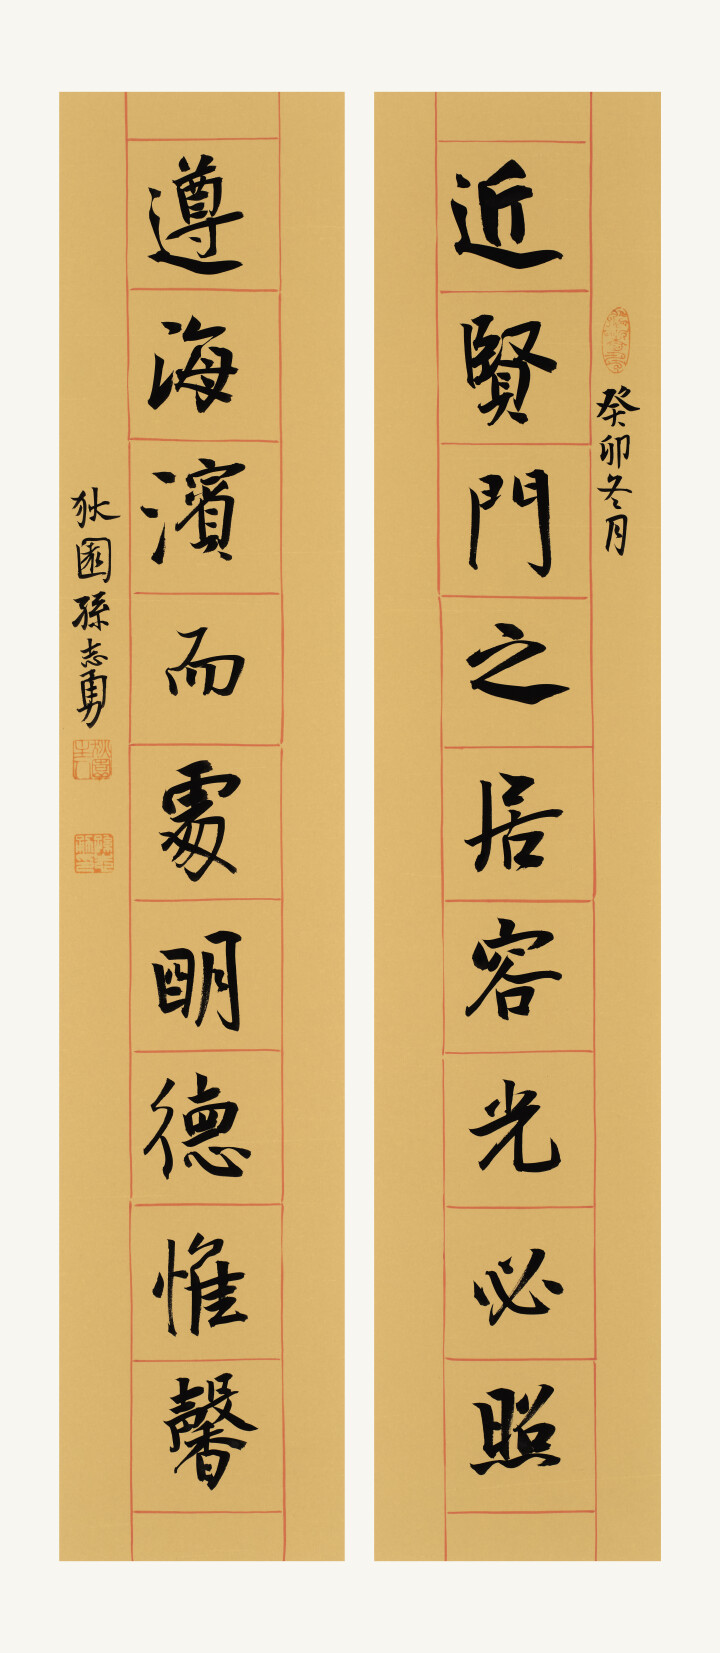 癸卯冬月
近賢門之居容光必照
遵海濱而處眀德惟馨
狄園孫志勇